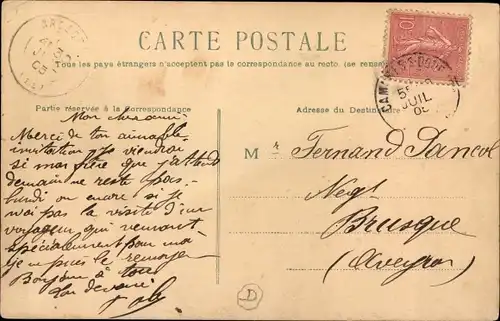 CARTE POSTALE
Tous les pays étrangers n'acceptent pas la correspondance au recto. (se rense
Partie réservée à la Correspondance
Adresse du Destinataire
Mon
Merci de ton aimable
invitation, je viendrai
si mon frère que j'attend
demain ne reste pas
lundi ou encore si je
n'ai pas la visite d'un
voyageur qui venant
spécialement pour moi
je ne puis le renvoyer
Bonjour à tous
Ton
M r Fernand Pancol
Negt
Brusque
(Aveyron)
JUIL
10
D